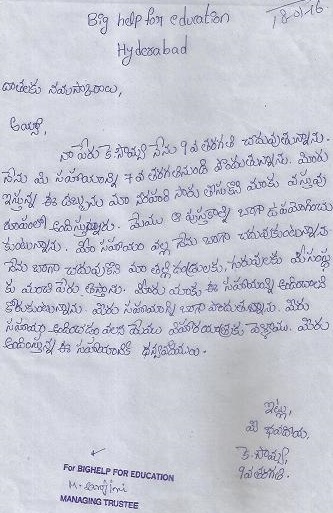 Big help for education
Hyderabad
దాతలకు నమస్కారాలు,
నా పేరు కె.సౌమ్య నేను 9వ తరగతి చదువుతున్నాను.
నేను మీ సహాయాన్ని 7వ తరగతినుండి పొందుతున్నాను. మీరు
ఇస్తున్న ఈ డబ్బును మా సార్లు తీసుకొని మాకు వస్తువు
రూపంలో అందిస్తున్నారు. మేము ఆ పుస్తకాల్ని బాగా ఉపయోగించు
కుంటున్నాను. మీరు సహాయం వల్ల నేను బాగా చదువుకుంటున్నాను
నేను బాగా చదువుకొని మా తల్లి దండ్రులకు, గురువులకు మీ సంస్థ
కు మంచి పేరు తెస్తాను. మీరు మాకు ఈ సహాయాన్ని అందించాలి
కోరుకుంటున్నాను. మీరు సహాయాన్ని బాగా పొందుతున్నాను. మీరు
సహాయం అందించడం వలన మేము విహారయాత్రకు వెళ్ళాము. మీరు
అందిస్తున్న ఈ సహాయానికి ధన్యవాదములు.
ఇట్లు,
మీ
కె.సౌమ్య,
9వ తరగతి.
For BIGHELP FOR EDUCATION
MANAGING TRUSTEE